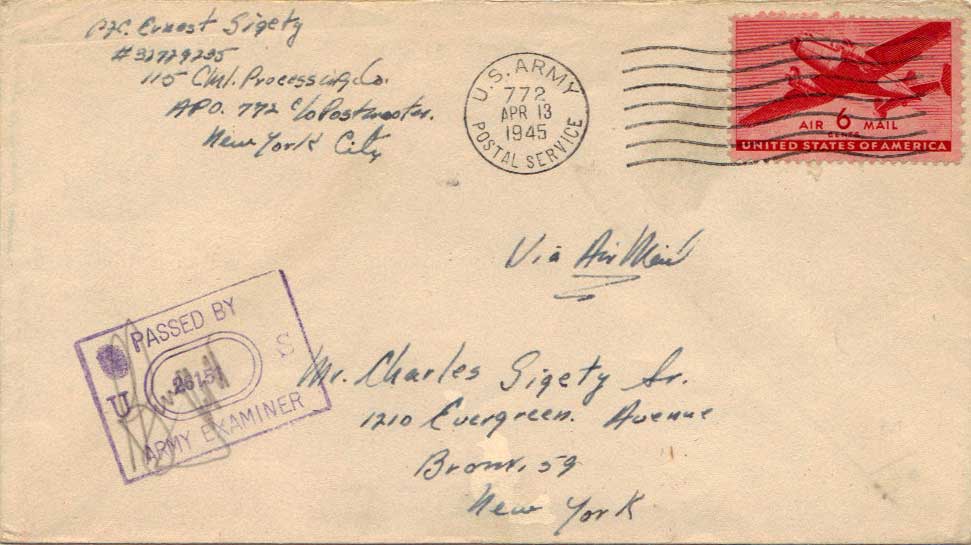 Pfc. Ernest Sigety
#32779235
115 Cml. Processing Co.
APO. 772 c/o Postmaster.
New York City
U.S. ARMY
772
APR 13
1945
POSTAL SERVICE
AIR 6 MAIL
CENTS
UNITED STATES OF AMERICA
Via Air Mail
PASSED BY
U S
26151
ARMY EXAMINER
Mr. Charles Sigety Sr.
1210 Evergreen. Avenue
Bronx, 59
New York